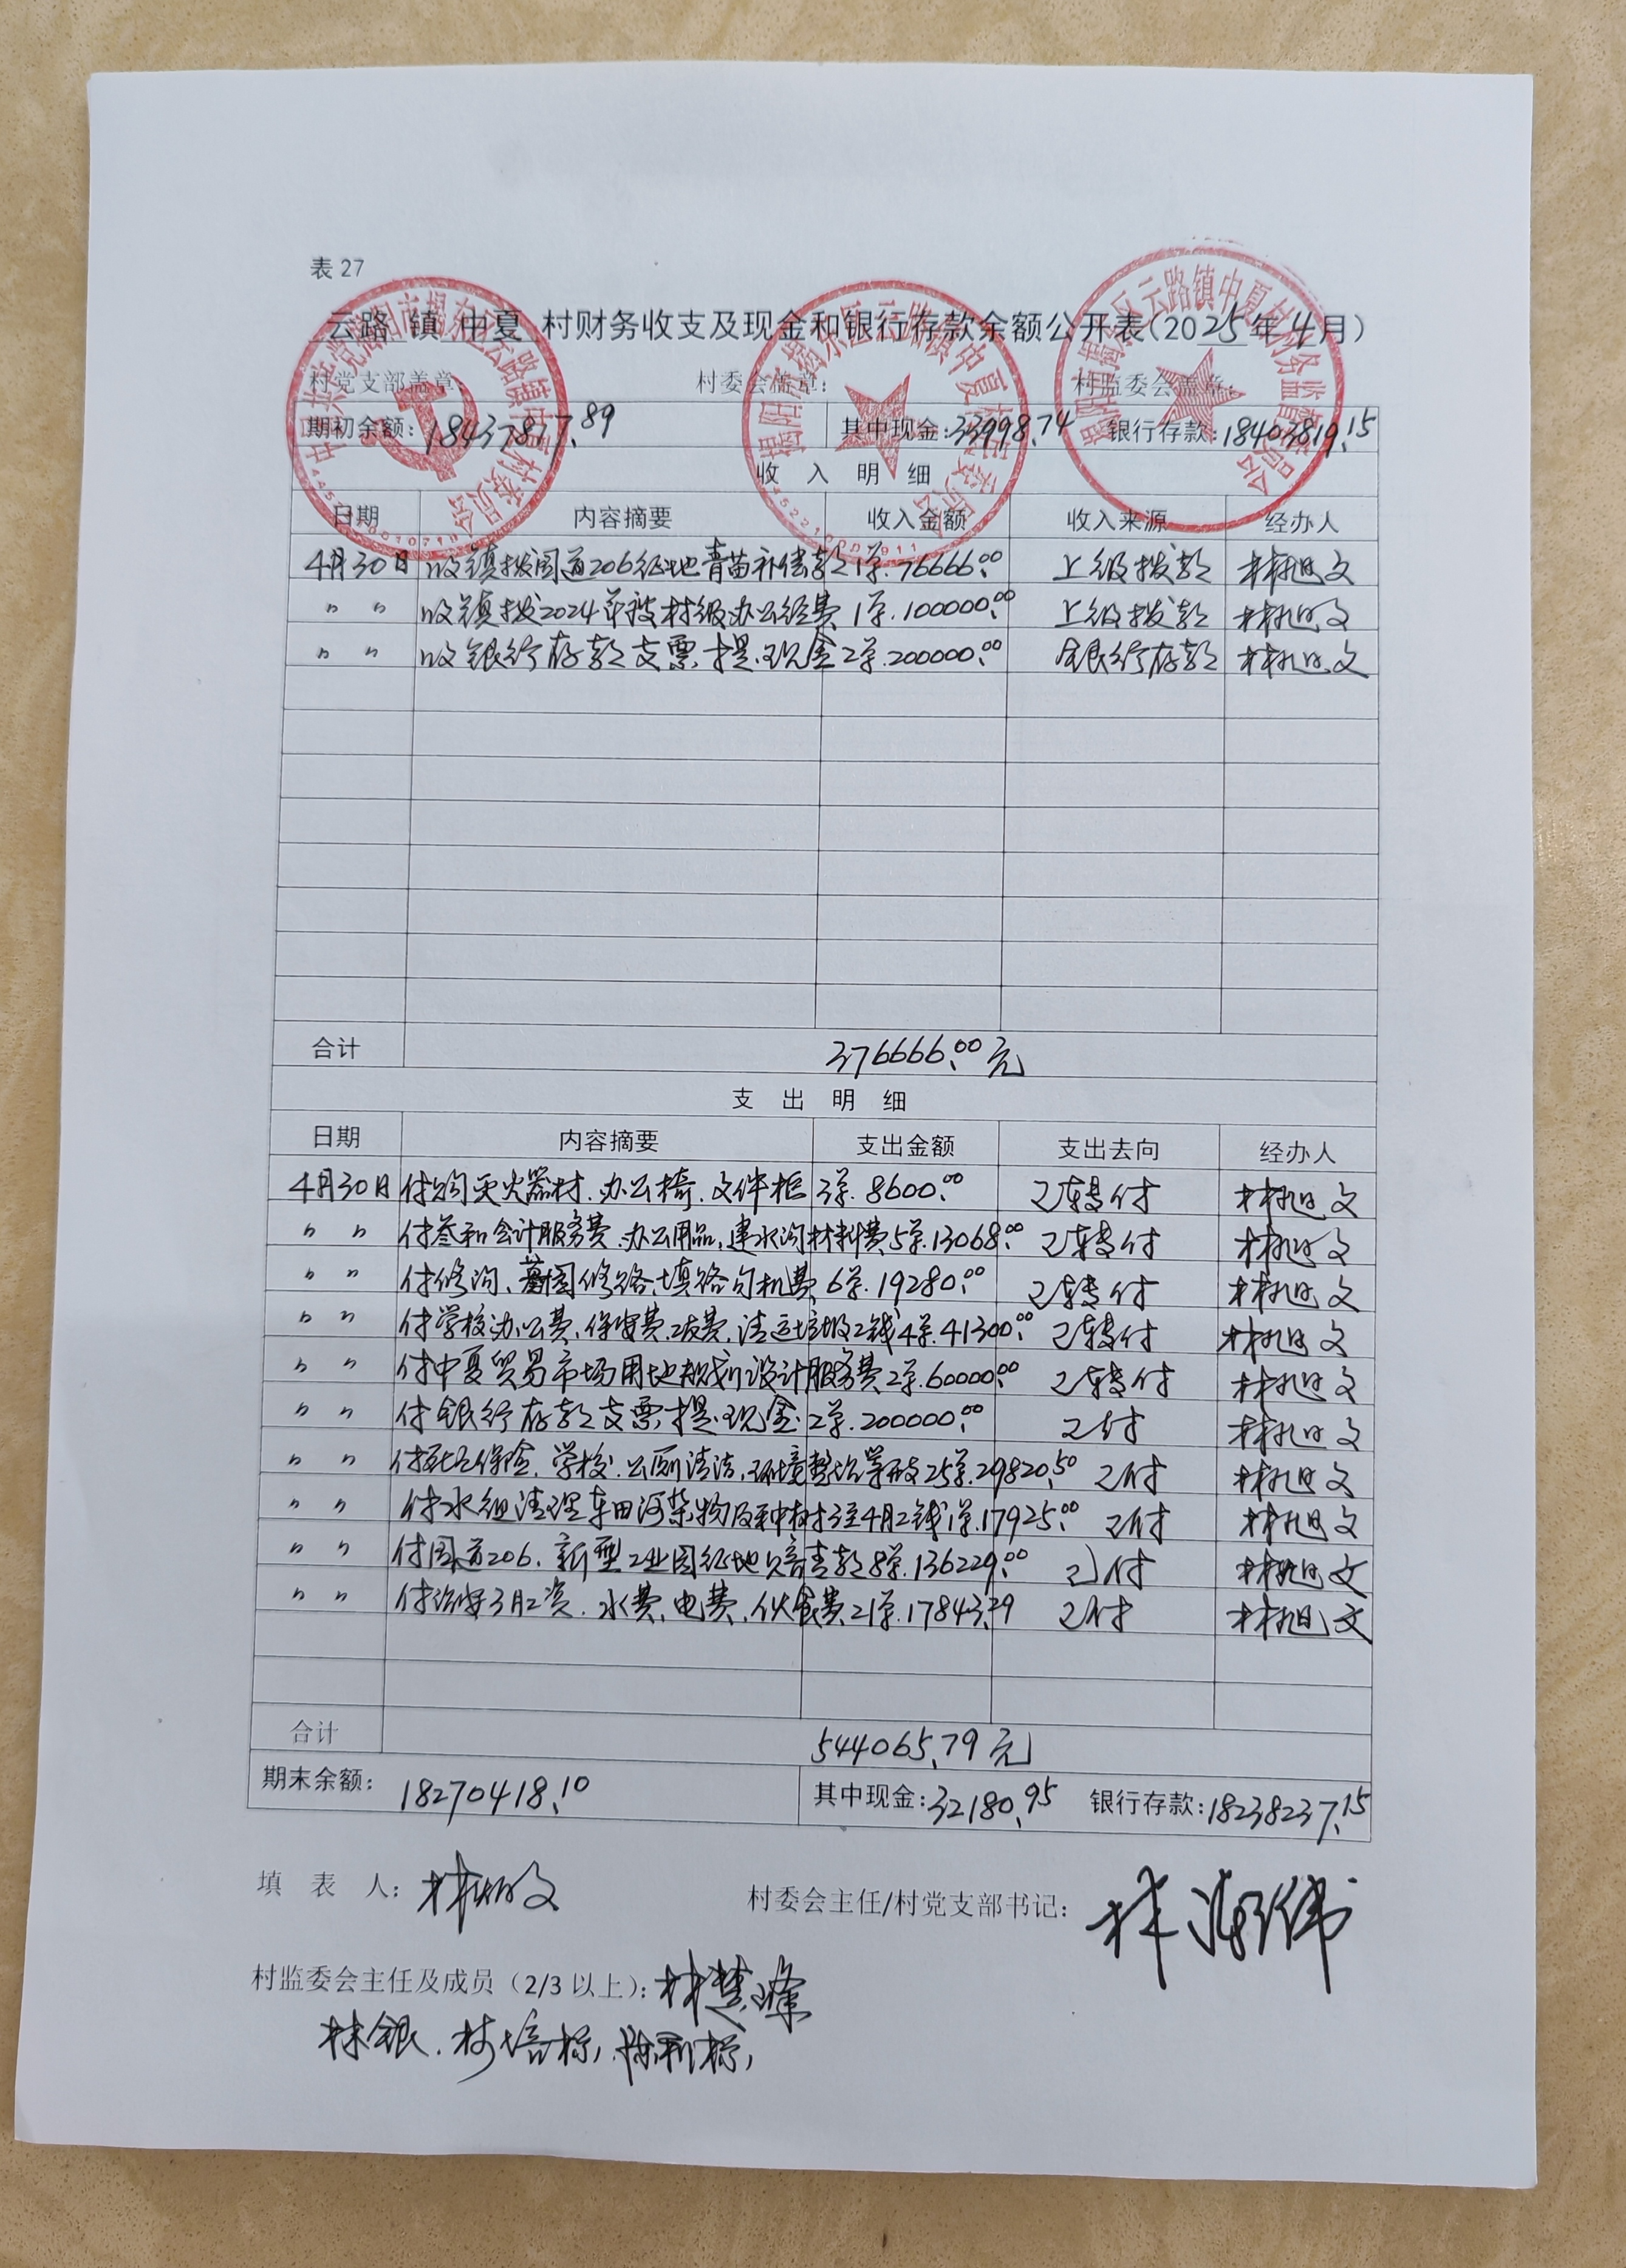 表 27
云路 镇 中夏 村财务收支及现金和银行存款余额公开表(2025年4月)
村党支部盖章: 村委会盖章: 村监委会盖章:
期初余额: 18437817.89 其中现金: 33998.74 银行存款: 18403819.15
收 入 明 细
日期 内容摘要 收入金额 收入来源 经办人
4月30日 收镇拨国道206征地青苗补偿款1单. 76666.00 上级拨款 林旭文
〃 〃 收镇拨2024年度村级办公经费 1单. 100000.00 上级拨款 林旭文
〃 〃 收银行存款支票提现金2单. 200000.00 银行存款 林旭文
合计 376666.00元
支 出 明 细
日期 内容摘要 支出金额 支出去向 经办人
4月30日 付购灭火器材.办公椅.文件柜 3单. 8600.00 已转付 林旭文
〃 〃 付叁和会计服务费.办公用品,建水沟材料费5单.13068.00 已转付 林旭文
〃 〃 付修沟、修路、填路勾机费 6单. 19280.00 已转付 林旭文
〃 〃 付学校办公费,保安费,清运垃圾工钱4单.41300.00 已转付 林旭文
〃 〃 付中夏贸易市场用地规划设计服务费2单.60000.00 已转付 林旭文
〃 〃 付银行存款支票提现金2单.200000.00 已付 林旭文
〃 〃 保险.学校.公厕清洁,环境整治等开支25单.29820.50 已付 林旭文
〃 〃 付水组清理车田河杂物及种树3至4月工钱1单.17925.00 已付 林旭文
〃 〃 付国道206.新型工业园征地赔青款8单.136229.00 已付 林旭文
〃 〃 付治安3月工资.水费,电费,伙食费21单.17843.29 已付 林旭文
合计 544065.79元
期末余额: 18270418.10 其中现金: 32180.95 银行存款: 18238237.15
填 表 人: 林旭文 村委会主任/村党支部书记: 林潮伟
村监委会主任及成员(2/3 以上): 林楚峰
林银. 林培标, 陈利标,